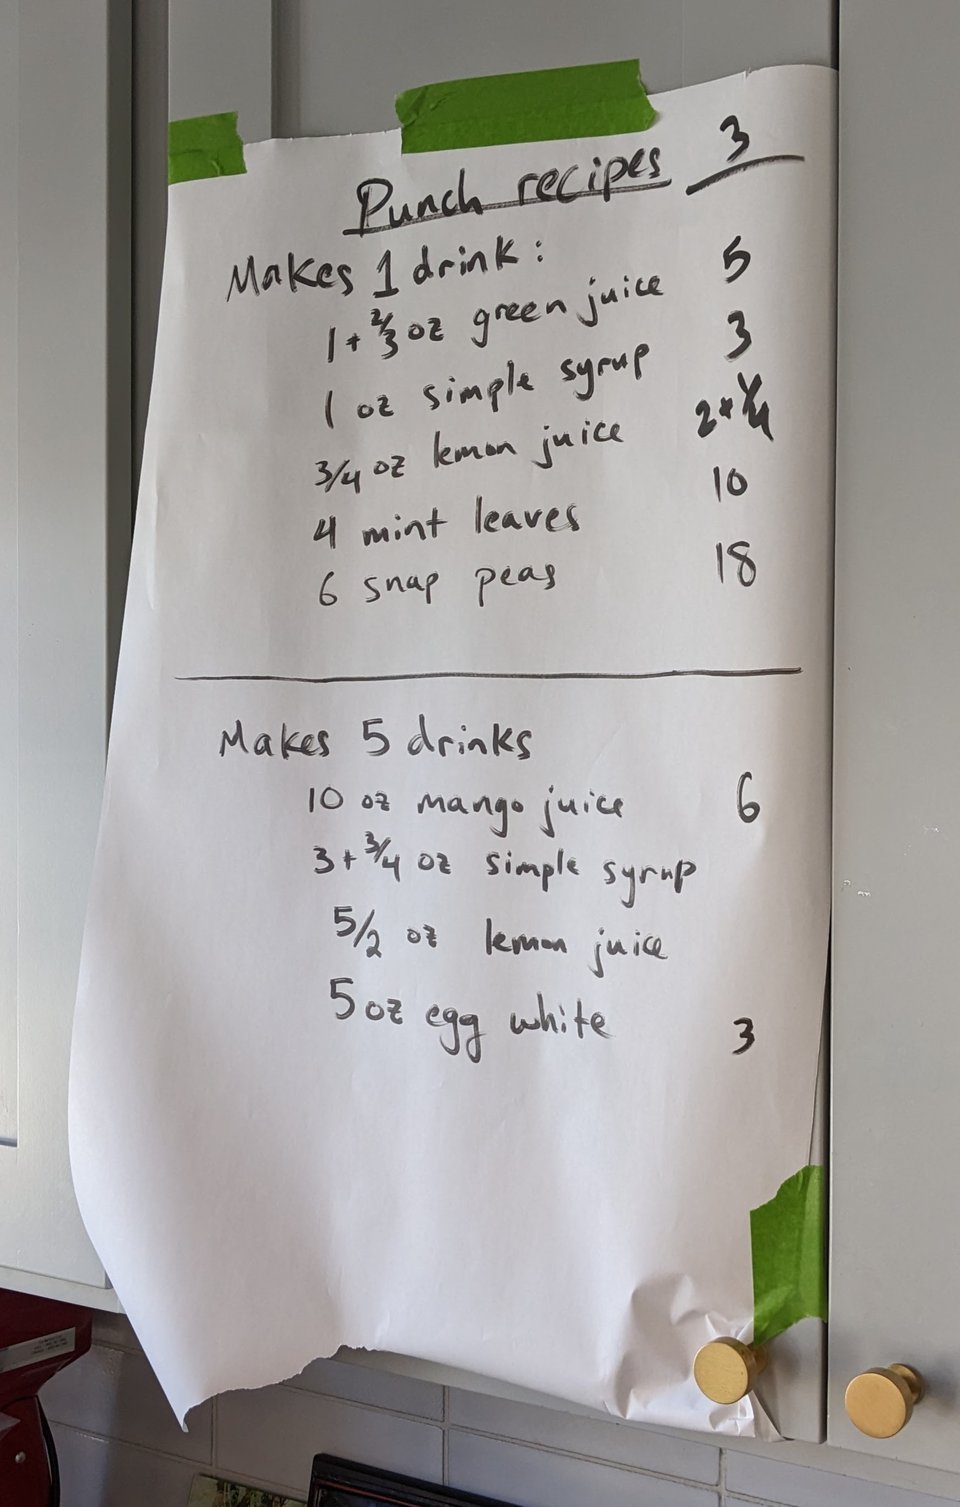 Punch recipes 3
Makes 1 drink:
1 + 2/3 oz green juice 5
1 oz simple syrup 3
3/4 oz lemon juice 2 + 1/4
4 mint leaves 10
6 snap peas 18
Makes 5 drinks
10 oz mango juice 6
3 + 3/4 oz simple syrup
5/2 oz lemon juice
5 oz egg white 3